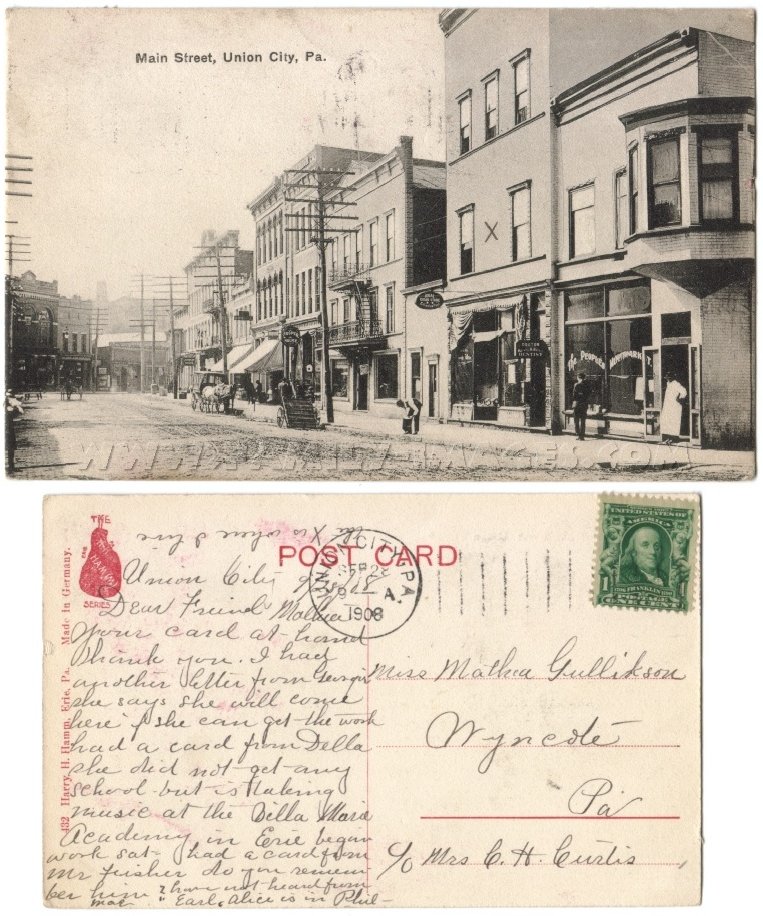 Main Street, Union City, Pa.
DENTIST
The PEOPLES
WWW.
IMAGES.COM
the X is where I live
POST CARD
THE
HAMM
SERIES
432 Harry H. Hamm, Erie, Pa. Made in Germany.
UNION CITY, PA.
SEP 22
9 A
1908
UNITED STATES OF
AMERICA
1
FRANKLIN
POSTAGE
ONE CENT
Union City
Dear Friend Mathea
Your card at hand
Thank you. I had
another letter from Georgia
she says she will come
here if she can get the work
had a card from Della
she did not get any
school but is taking
music at the Villa Maria
Academy in Erie began
work Sat- had a card from
Mr Fusher do you remem
ber him? have not heard from
Mae "Earl, Alice is in Phil-
Miss Mathea Gullikson
Wyncote
Pa
c/o Mrs C. H. Curtis